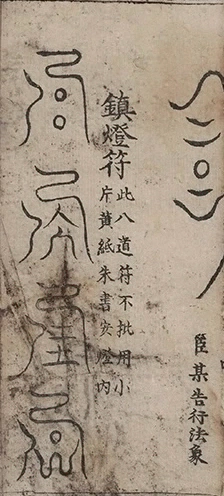 臣某告行法象
鎮燈符
此八道符不批用小
片黃紙朱書安燈內